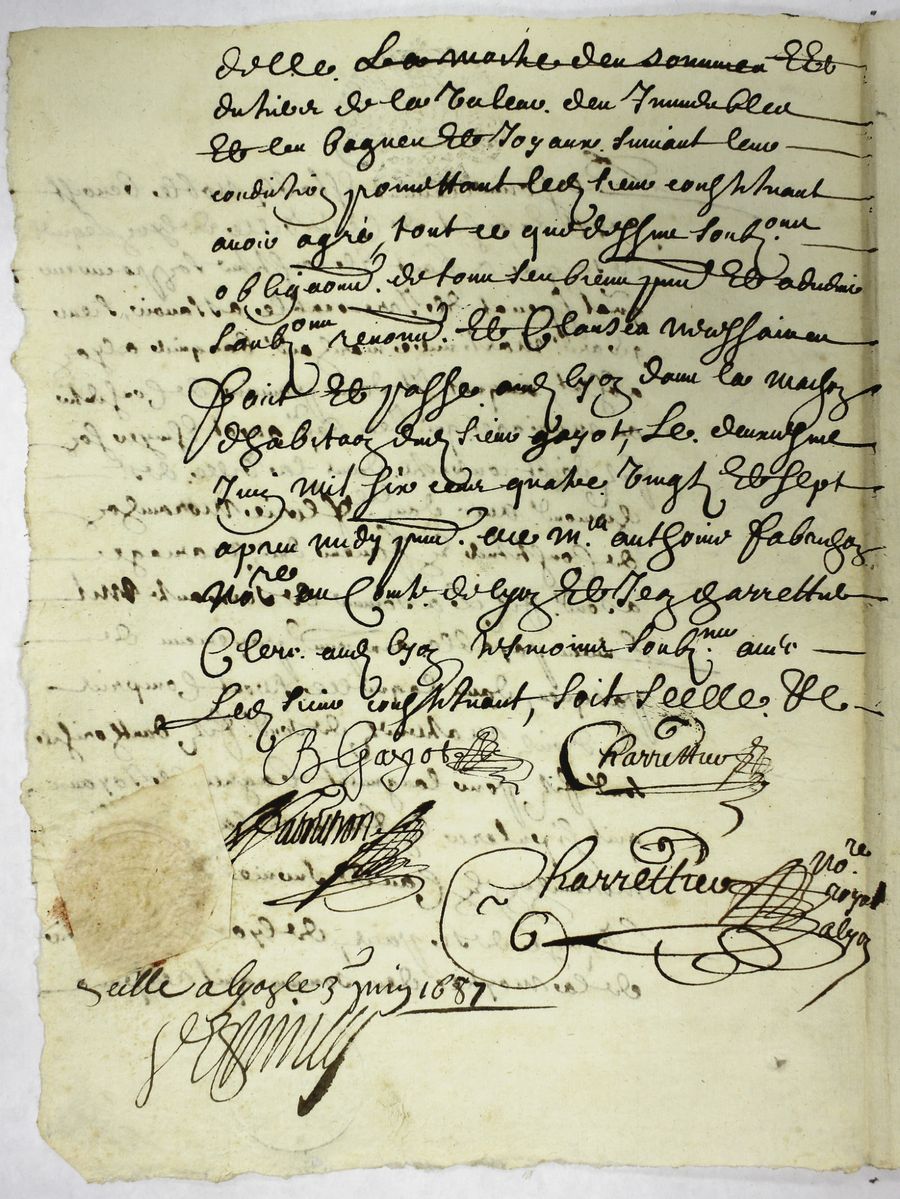 delle. La moitie des sommes Et
du tiers de la valeur des Immeubles
Et les bagues Et Joyaux suivant leur
condition promettant led sieur constituant
avoir agré, tout ce que dessus soubz
obliga͞on. de tous ses biens p͞n͞t Et advenir
soubz͞ons renon͞. Et Clauses necessaires
Fait Et passé aud lyon dans la maison
d'habita͞on dud sieur gayot, Le. deuxiesme
Juin mil six cens quatre Vingtz Et sept
apres midy p͞n͞t. a ce m.re anthoine fabrichon
No.re au Comté de lyon Et Jean Charrettier
Clerc. aud lyon tesmoins soubz.nes avec
Led sieur constituant, soit scelle. &c
B Gayot Charrettier
Fabrichon
Charrettier no.re royal a lyon
6
Scellé a lyon le 3 Juin 1687